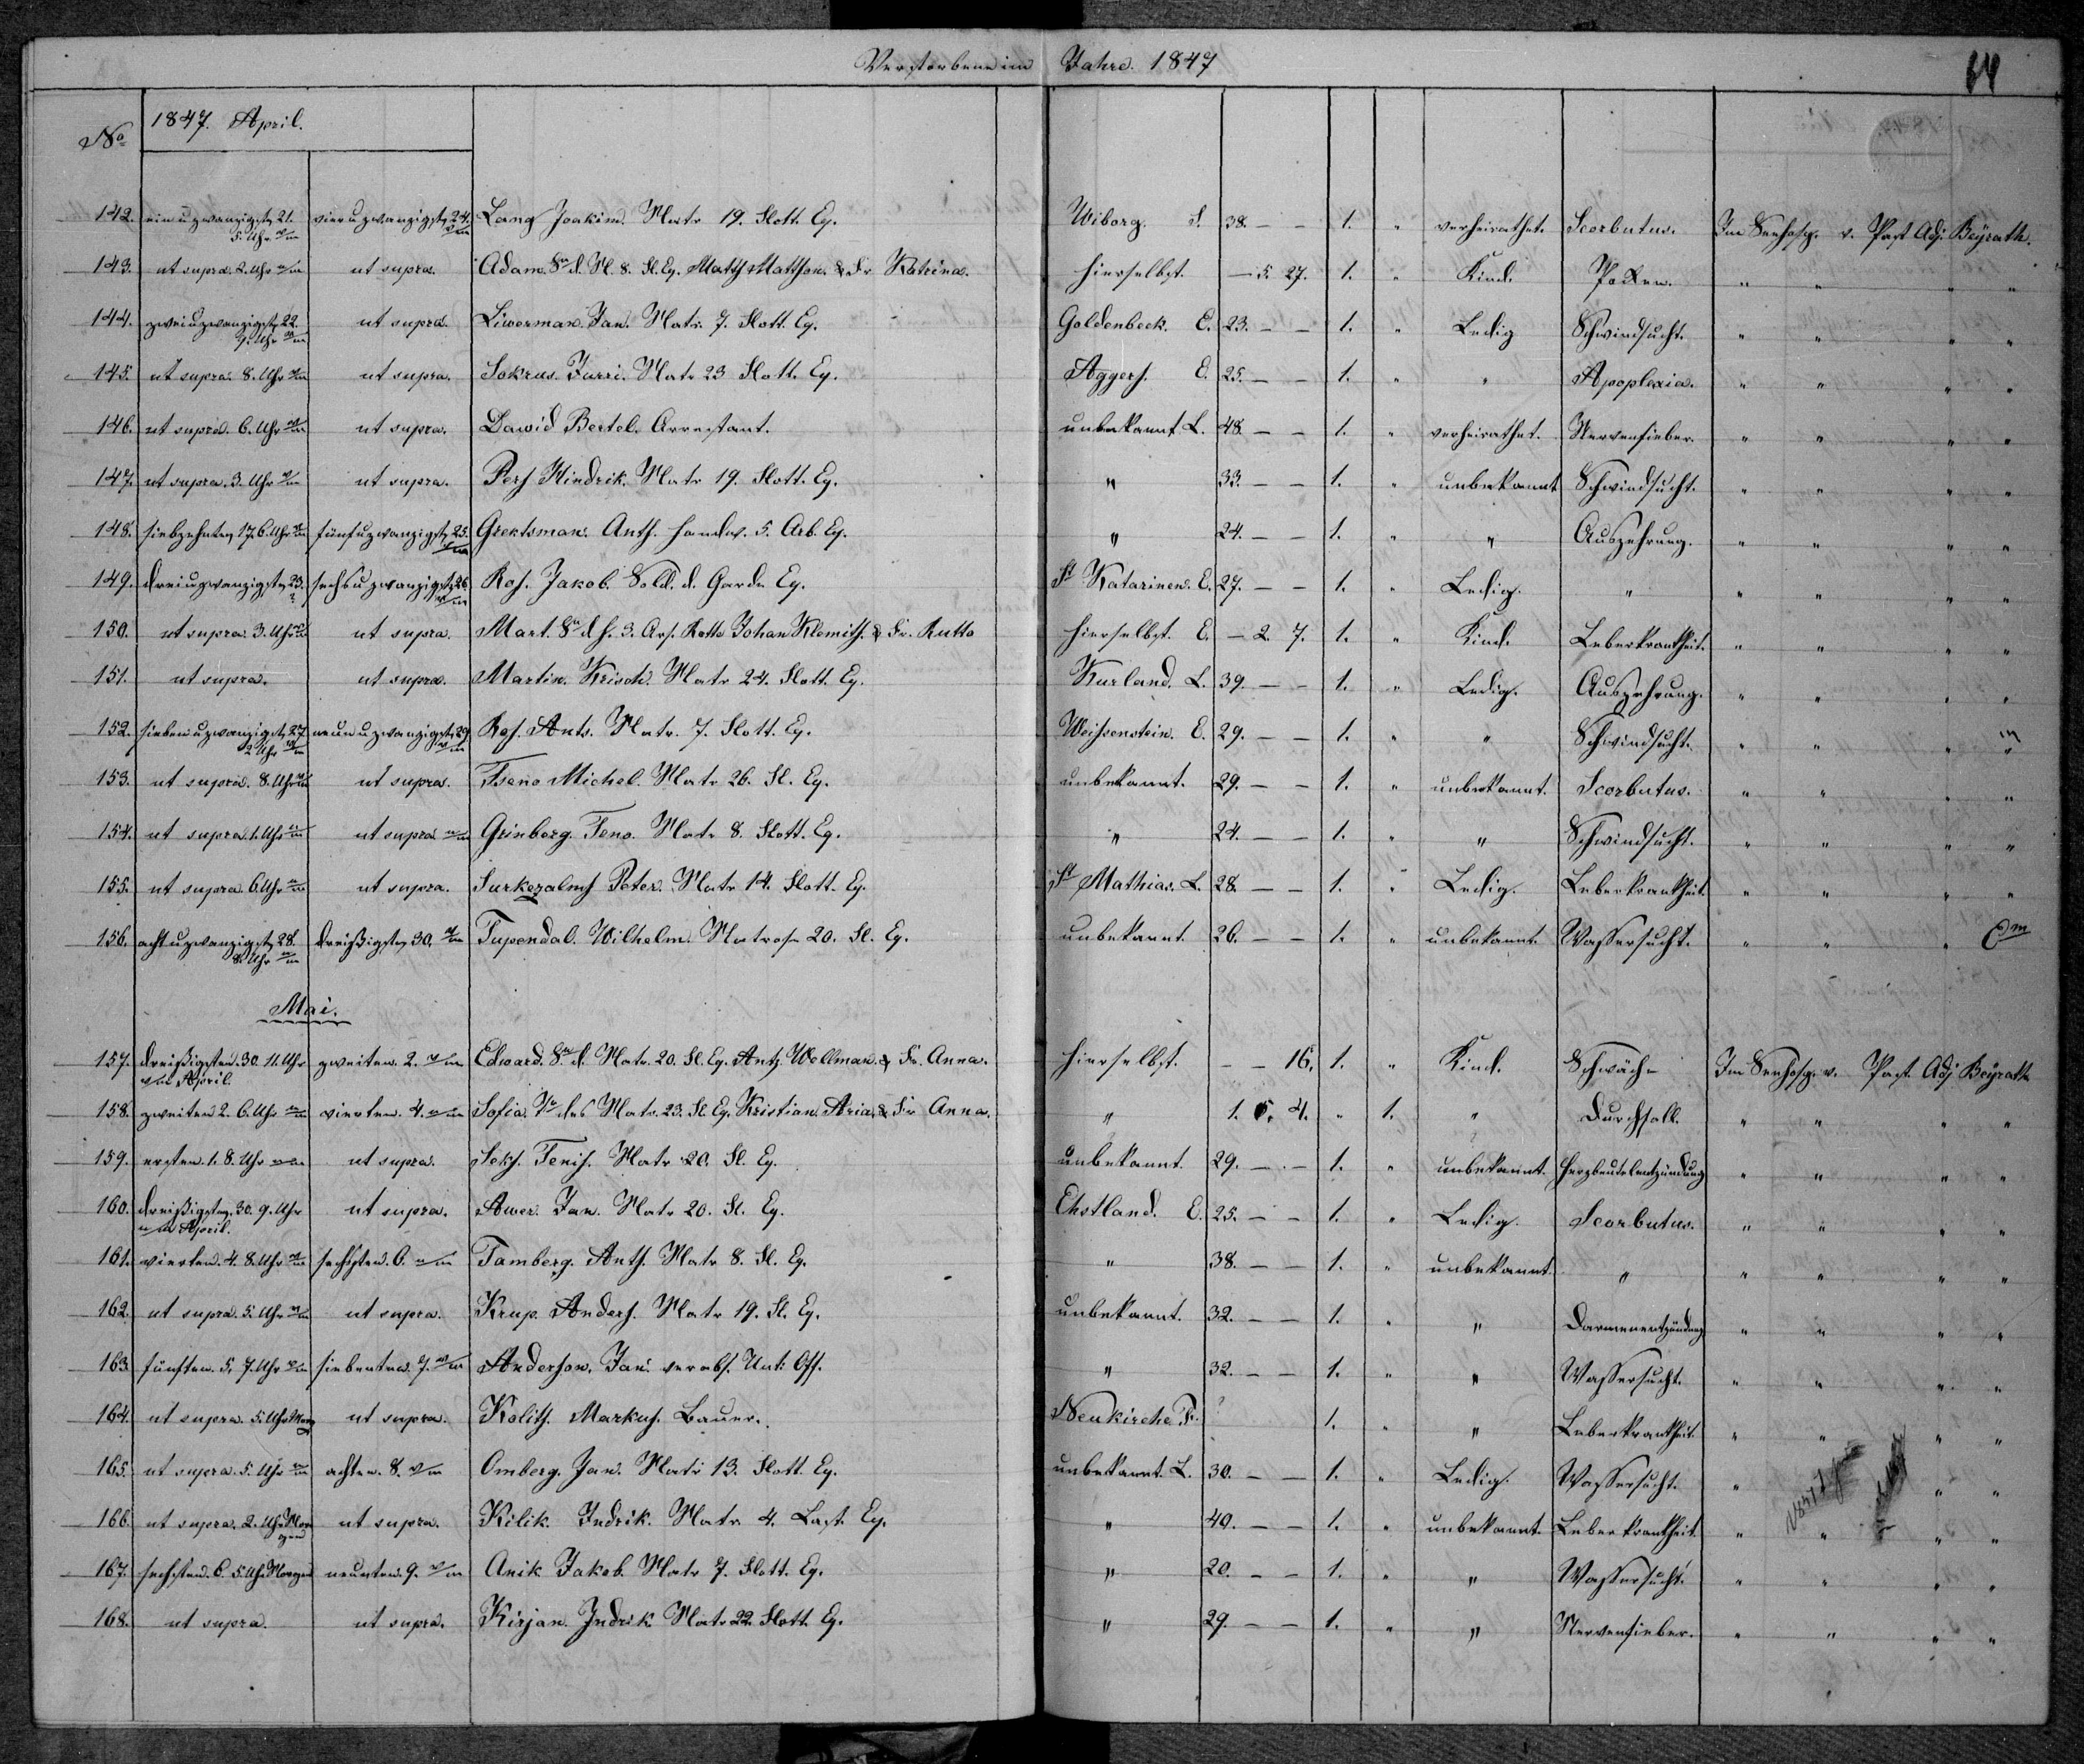 Verstorbene im Jahre. 1847
64
No 1847. April.
142. ein u zwanzigsten 21. 5. Uhr vier u zwanzigsten 24. Lang Joakim. Matr 19. Flott. Eq. Wiborg. S. 38. – – 1. " verheirathet. Scorbutus. Im Seehosp. v. Past Adj. Beÿrath.
143. ut supra. 2. Uhr ut supra. Adam. Sn d. M. 8. Fl. Eq. Matts Mattson. & Fr Katrina. hierselbst. – 5. 27. 1. " Kind. Pocken. " " " "
144. zwei u zwanzigsten 22. 7. Uhr ut supra. Liwerman. Jan. Matr. 7. Flott. Eq. Goldenbeck. E. 23. – – 1. " Ledig Schwindsucht. " " " "
145. ut supra. 8. Uhr ut supra. Sokrus. Jurri. Matr 23 Flott. Eq. Aggers. E. 25. – – 1. " " Apoplexia. " " " "
146. ut supra. 6. Uhr ut supra. Dawid Bertel. Arrestant. unbekannt L. 48. – – 1. " verheirathet. Nervenfieber. " " " "
147. ut supra. 3. Uhr ut supra. Pers Hindrik. Matr 19. Flott. Eq. " 33. – – 1. " unbekannt Schwindsucht. " " " "
148. siebzehnten 17. 6. Uhr fünf u zwanzigsten 25. Grektsman. Ants. Handw. 5. Arb. Eq. " 24. – – 1. " " Auszehrung. " " " "
149. drei u zwanzigsten 23. ? sechs u zwanzigsten 26. Ros. Jakob. Sold. d. Garde Eq. St Katarinen. E. 27. – – 1. " Ledig. " " " " "
150. ut supra. 3. Uhr ut supra. Mart. Sn d s. 3. Ars. Rotte Johan Klemits. & Fr. Rutto hierselbst. E. – 2. 7. 1. " Kind. Leberkrankheit. " " " "
151. ut supra. ut supra. Martin. Krisch. Matr 24. Flott. Eq. Kurland. L. 39. – – 1. " Ledig. Auszehrung. " " " "
152. sieben u zwanzigsten 27. 2 Uhr neun u zwanzigsten 29. Ros. Ants. Matr. 7. Flott. Eq. Weissenstein. E. 29. – – 1. " " Schwindsucht. " " " "
153. ut supra. 8. Uhr ut supra. Tseno Michel. Matr 26. Fl. Eq. unbekannt. 29. – – 1. " unbekannt. Scorbutus. " " " "
154. ut supra. 1. Uhr ut supra Grinberg. Teno. Matr 8. Flott. Eq. " 24. – – 1. " " Schwindsucht. " " " "
155. ut supra. 6 Uhr ut supra. Surkezalms Peter. Matr 14. Flott. Eq. St Mathias. L. 28. – – 1. " Ledig. Leberkrankheit. " " " "
156. acht u zwanzigsten 28. 8. Uhr dreißigsten 30. Tupendal. Wilhelm. Matrose 20. Fl. Eq. unbekannt. 26. – – 1. " unbekannt. Wassersucht. " " "
Mai.
157. dreißigsten. 30. 11. Uhr April. zweiten. 2. Edward. Sn d. Matr. 20. Fl. Eq. Ants. Wellman. & Fr. Anna. hierselbst. – – 16. 1. " Kind. Schwäche Im Seehosp. v. Past. Adj Beÿrath
158. zweiten 2. 6. Uhr vierten. 4. Sofia. Tr des Matr. 23. Fl Eq. Kristian. Aria. & Fr Anna. " 1. 5. 4. " 1. " Durchfall. " " " "
159. ersten. 1. 8. Uhr ut supra. Seks. Tenis. Matr 20. Fl. Eq. unbekannt. 29. – – 1. " unbekannt. Herzbeutelentzündung " " " "
160. dreißigsten. 30. 9. Uhr April. ut supra. Awer. Jan. Matr 20. Fl. Eq. Ehstland. E. 25. – – 1. " Ledig. Scorbutus. " " " "
161. vierten. 4. 8. Uhr sechsten. 6. Tamberg. Ants. Matr 8. Fl. Eq. " 38. – – 1. " unbekannt. " " " " "
162. ut supra. 5. Uhr ut supra. Krup. Anders. Matr 19. Fl. Eq. unbekannt. 32. – – 1. " " Darmenentzündung " " " "
163. fünften. 5. 7. Uhr siebenten. 7. Anderson. Jan. verabs. Unt. Off. " 32. – – 1. " " Wassersucht. " " " "
164. ut supra. 5. Uhr Morg ut supra. Kolits. Markus. Bauer. Neukirche F. ? 1. " " Leberkrankheit. " " " "
165. ut supra. 5. Uhr achten. 8. Omberg. Jan. Matr 13. Flott. Eq. unbekannt. L. 30. – – 1. " Ledig. Wassersucht. " " "
166. ut supra. 2. Uhr Morgens ut supra. Kilik. Indrik. Matr 4. Last. Eq. " 40. – – 1. " unbekannt. Leberkrankheit " " " "
167. sechsten. 6. 5. Uhr Morgens neunten. 9. Anik Jakob. Matr 7. Flott. Eq. " 20. – – 1. " " Wassersucht. " " " "
168. ut supra. ut supra. Kirjan. Indrik. Matr 22. Flott. Eq. " 29. – – 1. " " Nervenfieber. " " " "